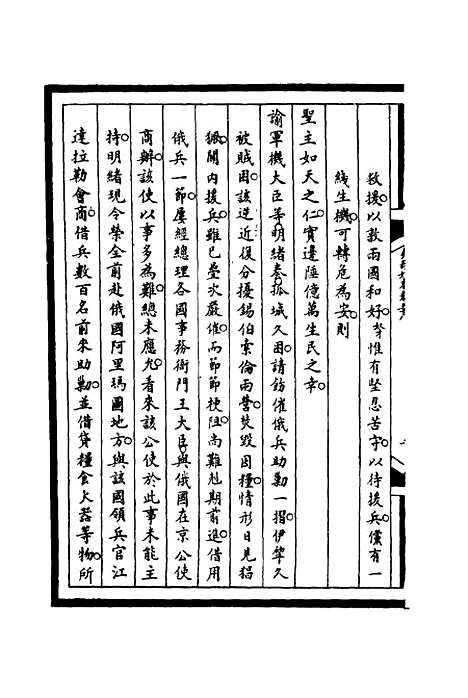 救援以敦兩國和好等惟有堅忍苦守以待援兵儻有一
綫生機可轉危為安則
聖主如天之仁實邊陲億萬生民之幸
諭軍機大臣等明緒奏孤城久困請飭催俄兵助勦一摺伊犂久
被賊困該逆近復分擾錫伯索倫兩營焚毀囤糧情形日見猖
獗關內援兵雖已疊次嚴催而節節梗阻尚難尅期前進借用
俄兵一節屢經總理各國事務衙門王大臣與俄國在京公使
商辦該使以事多為難總未應允看來該公使於此事未能主
持明緒現令榮全前赴俄國阿里瑪圖地方與該國領兵官江
達拉勒會商借兵數百名前來助勦並借貸糧食火器等物所